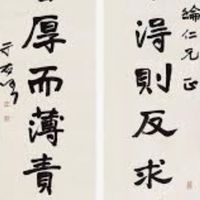 綸仁兄正
得則反求
厚而薄責
于右任